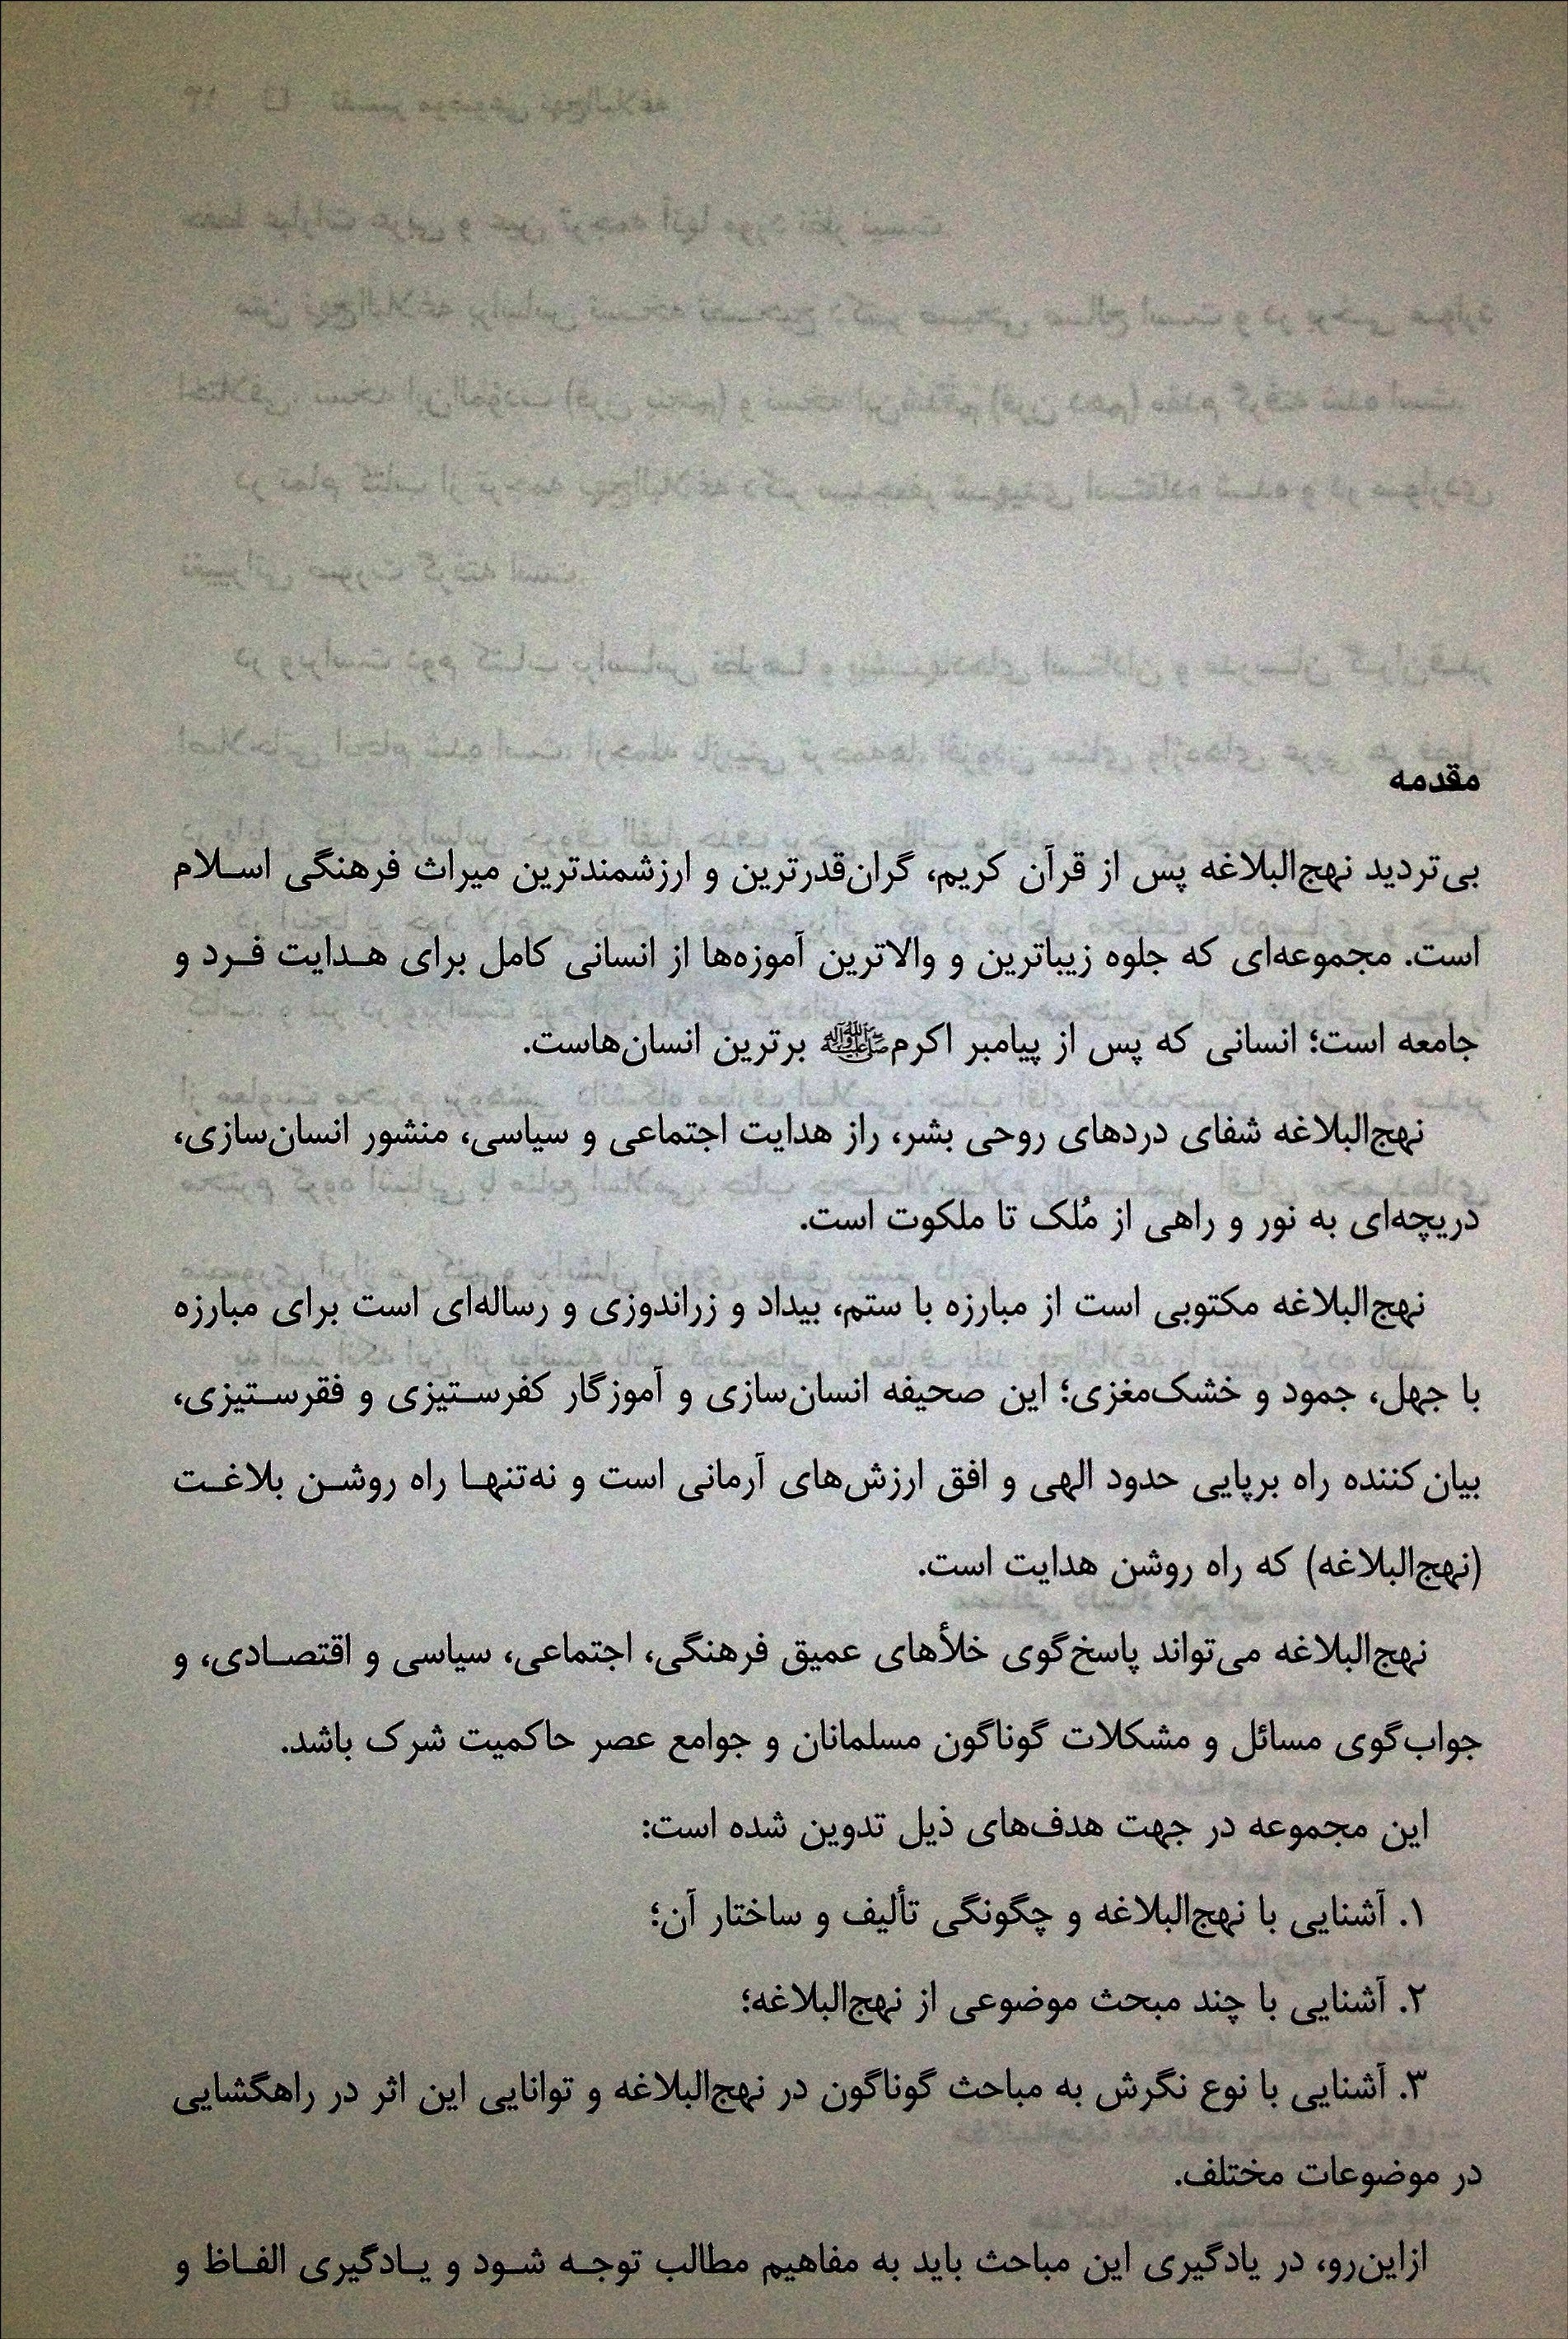 مقدمه
بی‌تردید نهج‌البلاغه پس از قرآن کریم، گران‌قدرترین و ارزشمندترین میراث فرهنگی اسلام
است. مجموعه‌ای که جلوه زیباترین و والاترین آموزه‌ها از انسانی کامل برای هدایت فرد و
جامعه است؛ انسانی که پس از پیامبر اکرمﷺ برترین انسان‌هاست.
نهج‌البلاغه شفای دردهای روحی بشر، راز هدایت اجتماعی و سیاسی، منشور انسان‌سازی،
دریچه‌ای به نور و راهی از مُلک تا ملکوت است.
نهج‌البلاغه مکتوبی است از مبارزه با ستم، بیداد و زراندوزی و رساله‌ای است برای مبارزه
با جهل، جمود و خشک‌مغزی؛ این صحیفه انسان‌سازی و آموزگار کفرستیزی و فقرستیزی،
بیان‌کننده راه برپایی حدود الهی و افق ارزش‌های آرمانی است و نه‌تنها راه روشن بلاغت
(نهج‌البلاغه) که راه روشن هدایت است.
نهج‌البلاغه می‌تواند پاسخ‌گوی خلأهای عمیق فرهنگی، اجتماعی، سیاسی و اقتصادی، و
جواب‌گوی مسائل و مشکلات گوناگون مسلمانان و جوامع عصر حاکمیت شرک باشد.
این مجموعه در جهت هدف‌های ذیل تدوین شده است:
۱. آشنایی با نهج‌البلاغه و چگونگی تألیف و ساختار آن؛
۲. آشنایی با چند مبحث موضوعی از نهج‌البلاغه؛
۳. آشنایی با نوع نگرش به مباحث گوناگون در نهج‌البلاغه و توانایی این اثر در راهگشایی
در موضوعات مختلف.
ازاین‌رو، در یادگیری این مباحث باید به مفاهیم مطالب توجه شود و یادگیری الفاظ و